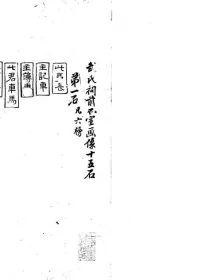 武氏祠前石室画像十五石
第一石凡六榜
此丞卿車
主記車
主簿車
此君車馬